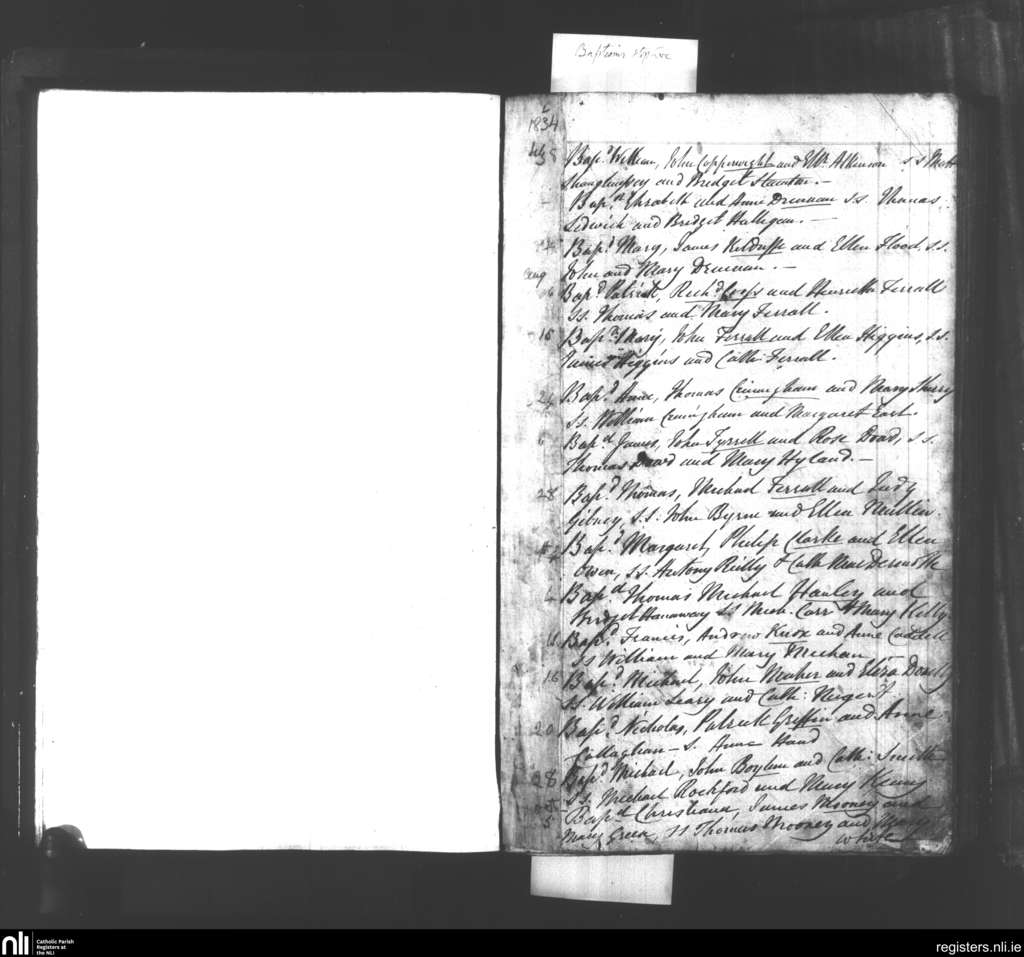 Baptisms
1834
8 Bap.d William, John Copperwight and Eliz. Atkinson s s Matt
and Bridget Staunton. —
Bap.d Elizabeth and Anne Drennan s.s. Thomas
Sedwich and Bridget Halligan. —
Bap.d Mary, James Kilduffe and Ellen Flood, s.s.
Aug John and Mary Drennan. —
Bap.d Patrick, Rich.d Coops and Henrietta Ferrall
Ss. Thomas and Mary Ferrall.
15 Bap.d Mary, John Ferrall and Ellen Higgins, s.s.
James Higgins and Cath: Ferrall.
24 Bap.d Anne, Thomas Cuningham and Mary Sherry
Ss. William Cuningham and Margaret East.
Bap.d James, John Tyrrell and Rose Doad, s s.
Thomas and Mary Hyland. —
28 Bap.d Thomas, Michael Ferrall and Judy
Gibney, s.s. John Byrne and Ellen Mullin.
Bap.d Margaret, Philip Clarke and Ellen
Owen, ss. Antony Reilly & Cath
Bap.d Thomas Michael Hanley and
Bridget Hanaway ss Mich. Carr & Mary Kelly
Bap.d Francis, Andrew Knox and Anne
Ss William and Mary Meehan
16 Bap.d Michael, John Meaher and Eliza
s.s. William Leary and Cath:
20 Bap.d Nicholas, Patrick Griffin and Anne
Callaghan — s. Anne Hand
28 Bap.d Michael, John Boylan and Cath: Smith
Ss. Michael Rochford and Mary Kenny
Oct 5 Bap.d Christiana, James Mooney and
Mary Green, ss Thomas Mooney and Mary
White
nli Catholic Parish
Registers at
the NLI
registers.nli.ie